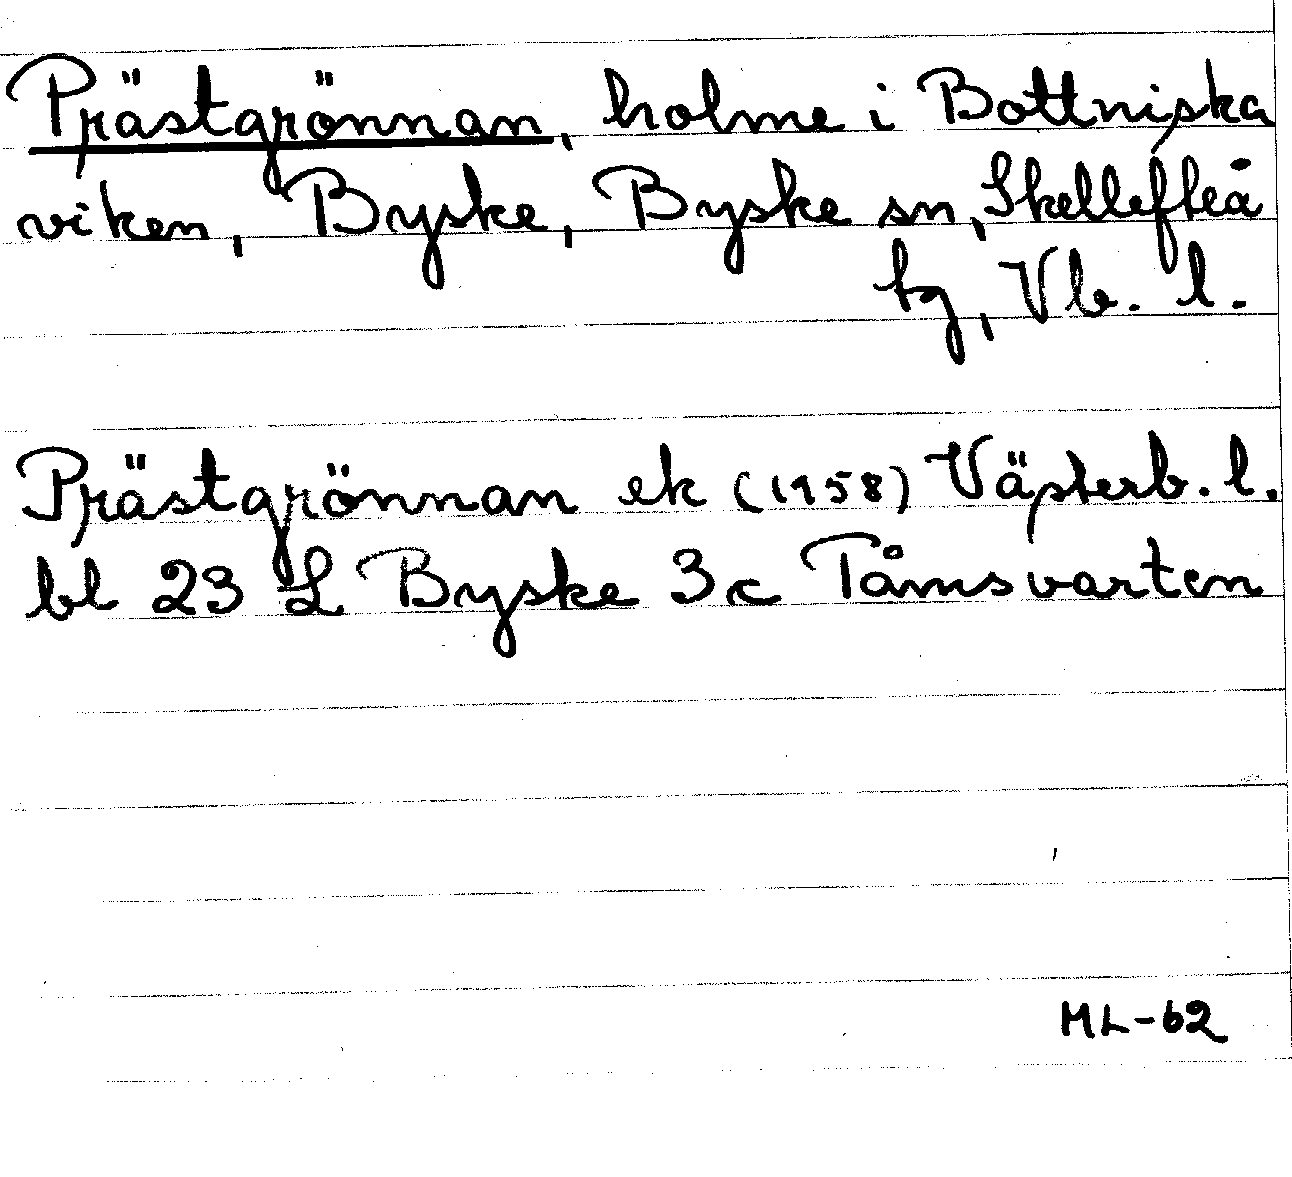 Prästgrönnan, holme i Bottniska
viken, Byske, Byske sn, Skellefteå
tg, Vb. l.
Prästgrönnan ek (1958) Västerb. l.
bl 23 L Byske 3c Tåmsvarten
ML-62